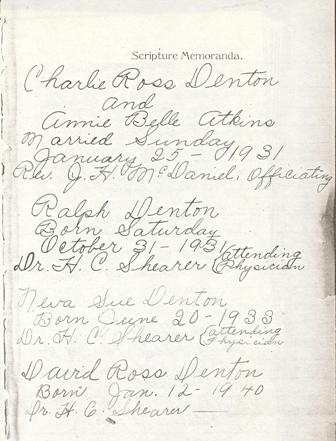 Scripture Memoranda.
Charlie Ross Denton
and
Annie Belle Atkins
Married Sunday
January 25 - 1931
Rev. J. H. McDaniel, Officiating
Ralph Denton
Born Saturday
October 31 - 1931
Dr. H. C. Shearer (attending
Physician
Neva Sue Denton
Born June 20 - 1933
Dr. H. C. Shearer (attending
Physician
David Ross Denton
Born Jan. 12 - 1940
Dr. H. C. Shearer —